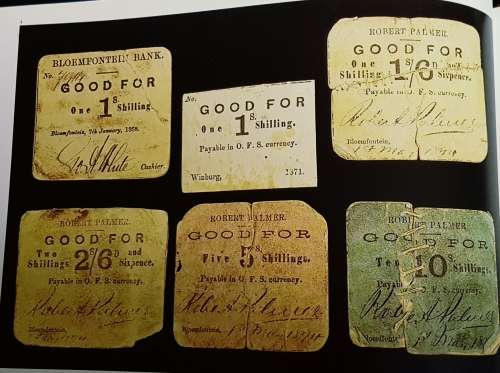 BLOEMFONTEIN BANK.
No.
GOOD FOR
One 1S. Shilling.
Bloemfontein, 7th January, 1868.
Cashier.
No.
GOOD FOR
One 1S. Shilling.
Payable in O. F. S. currency.
Winburg, 1871.
ROBERT PALMER.
GOOD FOR
One Shilling 1S/6D and Sixpence.
Payable in O. F. S. currency.
Robert Palmer
Bloemfontein,
ROBERT PALMER.
GOOD FOR
Two Shillings 2S/6D and Sixpence.
Payable in O. F. S. currency.
Robert Palmer
Bloemfontein,
ROBERT PALMER.
GOOD FOR
Five 5S. Shillings.
Payable in O. F. S. currency.
Robert Palmer
Bloemfontein,
ROBERT PALMER
GOOD FOR
Ten 10S. Shillings.
Payable in O. F. S. currency.
Robert Palmer
Bloemfontein,